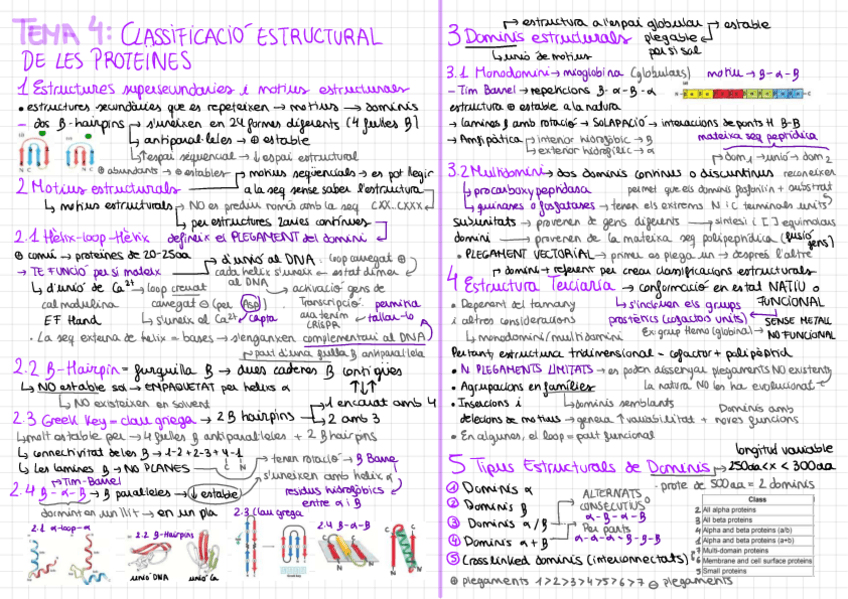 TEMA 4: CLASSIFICACIÓ ESTRUCTURAL
DE LES PROTEÏNES
1 Estructures supersecundàries i motius estructurals
• estructures secundàries que es repeteixen → motius → dominis
- dos β-hairpins → s'uneixen en 24 formes diferents (4 fulles β)
→ antiparal·leles → ⊕ estable
↳ ↑espai seqüencial → ↓ espai estructural
⊕ abundants → ⊕ estables
N C
2 Motius estructurals
→ motius seqüencials → es pot llegir
a la seq sense saber l'estructura
↳ motius estructurals → NO es prediu només amb la seq CXX..CXXX
↳ per estructures 2àries contínues
2.1 Hèlix-loop-Hèlix defineix el PLEGAMENT del domini
⊕ comú → proteïnes de 20-25aa
→ TE FUNCIÓ per si mateix
→ d'unió al DNA: loop carregat ⊕
cada hèlix s'uneix ← estat dímer
al DNA
↳ d'unió de Ca²⁺ → loop creuat → activació gens de
calmodulina
carregat ⊖ (per Asp)
EF Hand
↳ s'uneix al Ca²⁺ capta
Transcripció: permina
ara tenim → tallar-lo
CRISPR
• La seq externa de hèlix = bases → s'enganxen complementari al DNA
→ part d'una fulla β antiparal·lela
2.2 β-Hairpin = furquilla β → dues cadenes β contigües
↳ NO estable sol → EMPAQUETAT per hèlixs α
↳ NO existeixen en solvent
2.3 Greek Key = clau grega → 2 β hairpins
→ 1 encarat amb 4
→ 2 amb 3
↳ molt estable per → 4 fulles β antiparal·leles + 2 β hairpins
↳ connectivitat de les β → 1-2 + 2-3 + 4-1
↳ Les làmines β → NO PLANES
→ tenen rotació → β Barrel
s'uneixen amb hèlix α
→ Tim-Barrel
2.4 β-α-β → β paral·leles → ↓ estable
residus hidrofòbics
entre α i β
dormint en un llit → en un pla
2.1 α-loop-α
2.2 β-Hairpins
unió DNA
unió Ca
2.3 clau grega
2.4 β-α-β
3 Dominis estructurals
→ estructura a l'espai globular → estable
plegable
per si sol
↳ unió de motius
3.1 Monodomini → mioglobina (globulars) motiu → β-α-β
- Tim Barrel → repeticions β-α-β-α
estructura ⊕ estable a la natura
→ làmines β amb rotació → SOLAPACIÓ → interaccions de ponts H β-β
mateixa seq peptídica
→ Amfipàtica
→ interior hidrofòbic → β
→ exterior hidrofílic → α
→ dom1 → unió → dom2
3.2 Multidomini → dos dominis continus o discontinus
reconeixen
↳ procarboxypeptidasa
permet que els dominis fosforilin + substrat
↳ quinases o fosfatases → tenen els extrems N i C terminals units
Subunitats → provenen de gens diferents → síntesi i [ ] equimolars
domini → provenen de la mateixa seq polipeptídica (fusió gens)
• PLEGAMENT VECTORIAL → primer es plega un → després l'altre
→ domini → referent per crear classificacions estructurals
4 Estructura Terciària → conformació en estat NATIU o
FUNCIONAL
• Depenent del tamany
i altres consideracions
↳ monodomini/multidomini
→ s'inclouen els grups
prostètics (cofactors units)
Ex: grup Hemo (globina)
→ SENSE METALL
NO FUNCIONAL
Per tant, estructura tridimensional - cofactor + polipèptid
• N PLEGAMENTS LIMITATS → en poden dissenyar plegaments NO existents
• Agrupacions en famílies
la natura NO les ha evolucionat
↳ dominis semblants
• Insercions i
delecions de motius → genera ↑ variabilitat + noves funcions
Dominis amb
• En algunes, el loop = part funcional
longitud variable
5 Tipus Estructurals de Dominis → 250aa < x < 300aa
· prote de 500aa = 2 dominis
① Dominis α
② Dominis β
③ Dominis α/β
④ Dominis α+β
⑤ Crosslinked dominis (interconnectats)
ALTERNATS o
CONSECUTIUS
α-β-α-β
Per parts
α-α-α-β-β-β
Class
All alpha proteins
All beta proteins
Alpha and beta proteins (a/b)
Alpha and beta proteins (a+b)
Multi-domain proteins
Membrane and cell surface proteins
Small proteins
⊕ plegaments 1>2>3>4>5>6>7 ⊖ plegaments